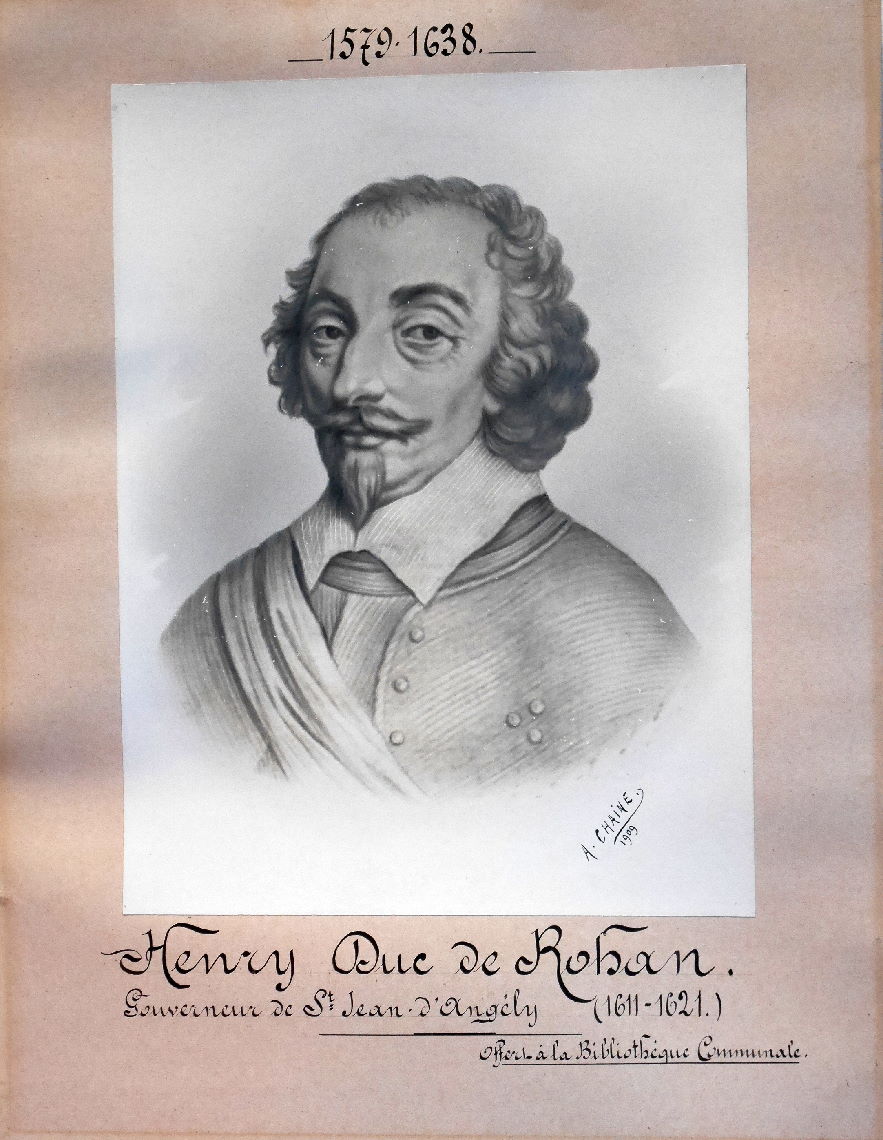 1579·1638.
A. CHAINE
1909
Henry Duc de Rohan.
Gouverneur de St Jean-d'Angély (1611-1621.)
Offert à la Bibliothéque Communale.